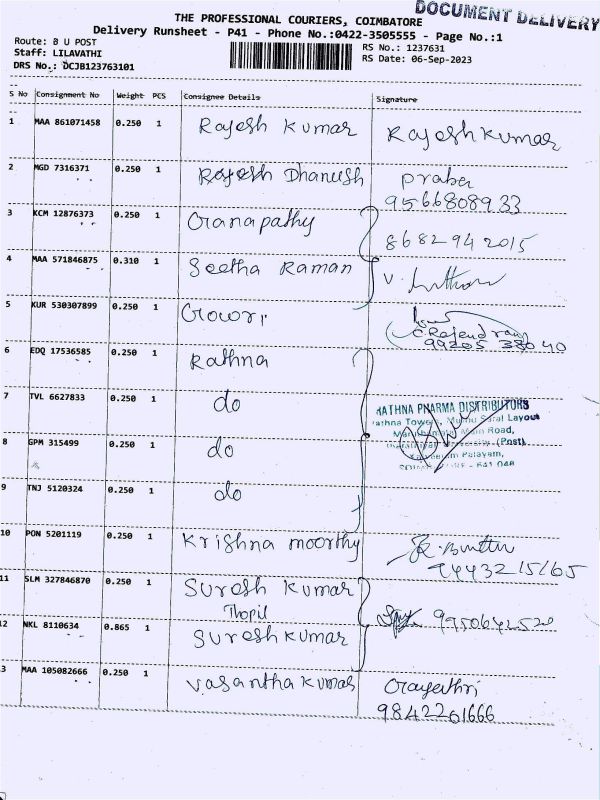 DOCUMENT DELIVERY
THE PROFESSIONAL COURIERS, COIMBATORE
Delivery Runsheet - P41 - Phone No.:0422-3505555 - Page No.:1
Route: B U POST
Staff: LILAVATHI
DRS No.: DCJB123763101
RS No.: 1237631
RS Date: 06-Sep-2023
S No Consignment No Weight PCS Consignee Details Signature
1 MAA 861071458 0.250 1 Rajesh Kumar Rajesh Kumar
2 MGD 7316371 0.250 1 Rajesh Dhanush Praba
9566808933
3 KCM 12876373 0.250 1 Ganapathy 8682942015
4 MAA 571846875 0.310 1 Seetha Raman V.
5 KUR 530307899 0.250 1 Gowri C Rajendran
99205 38040
6 EDQ 17536585 0.250 1 Rathna
7 TVL 6627833 0.250 1 do
RATHNA PHARMA DISTRIBUTORS
Layout
Main Road,
8 GPM 315499 0.250 1 do
(Post)
Palayam,
641 046
9 TNJ 5120324 0.250 1 do
10 PON 5201119 0.250 1 Krishna moorthy
9443215165
11 SLM 327846870 0.250 1 Suresh Kumar
Thopil
9950642520
12 NKL 8110634 0.865 1 Suresh Kumar
13 MAA 105082666 0.250 1 Vasantha Kumar Gayathri
9842261666